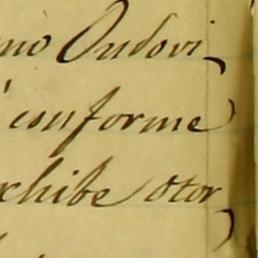 mo Oudovi
conforme
xhibe otor